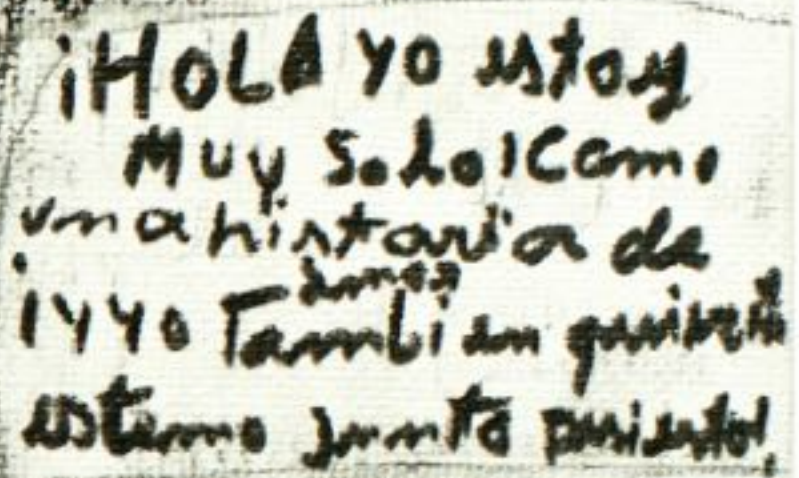 ¡HOLA yo estoy
MUY Solo! Como
una historia de
amor
¡Y YO Tambien
estemo junto